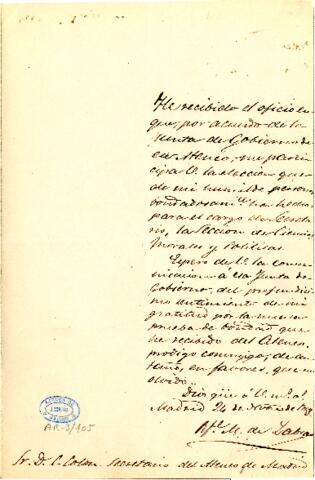 He recibido el oficio en
que, por acuerdo de la
Junta de Gobierno de
ese Ateneo, me partici-
cipa V. la eleccion que
de mi humilde persona
bondadosamte. ha hecho
para el cargo de Secreta-
rio, la Seccion de Ciencias
Morales y Politicas.
Espero de V. la comu-
nicacion a esa Junta de
Gobierno, del profundisi-
mo sentimiento de mi
gratitud por la nueva
prueba de bondad que
he recibido del Ateneo,
prodigo conmigo, de an-
taño, en favores, que no
olvido.
Dios gue. a V. m. a.
Madrid 24 de
Rl. M. de Labra
AR-3/105
Sr. D. C. Secretario del Ateneo de Madrid